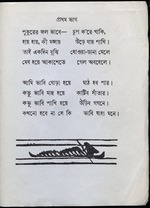 প্রথম ভাগ
পুকুরের জল ভাবে— চুপ ক'রে থাকি,
হায় হায়, কী মজায় উড়ে যায় পাখি।
তাই একদিন বুঝি ধোঁওয়া-ডানা মেলে
মেঘ হয়ে আকাশেতে গেল অবহেলে।
আমি ভাবি ঘোড়া হয়ে মাঠ হব পার।
কভু ভাবি মাছ হয়ে কাটিব সাঁতার।
কভু ভাবি পাখি হয়ে উড়িব গগনে।
কখনো হবে না সে কি ভাবি যাহা মনে।